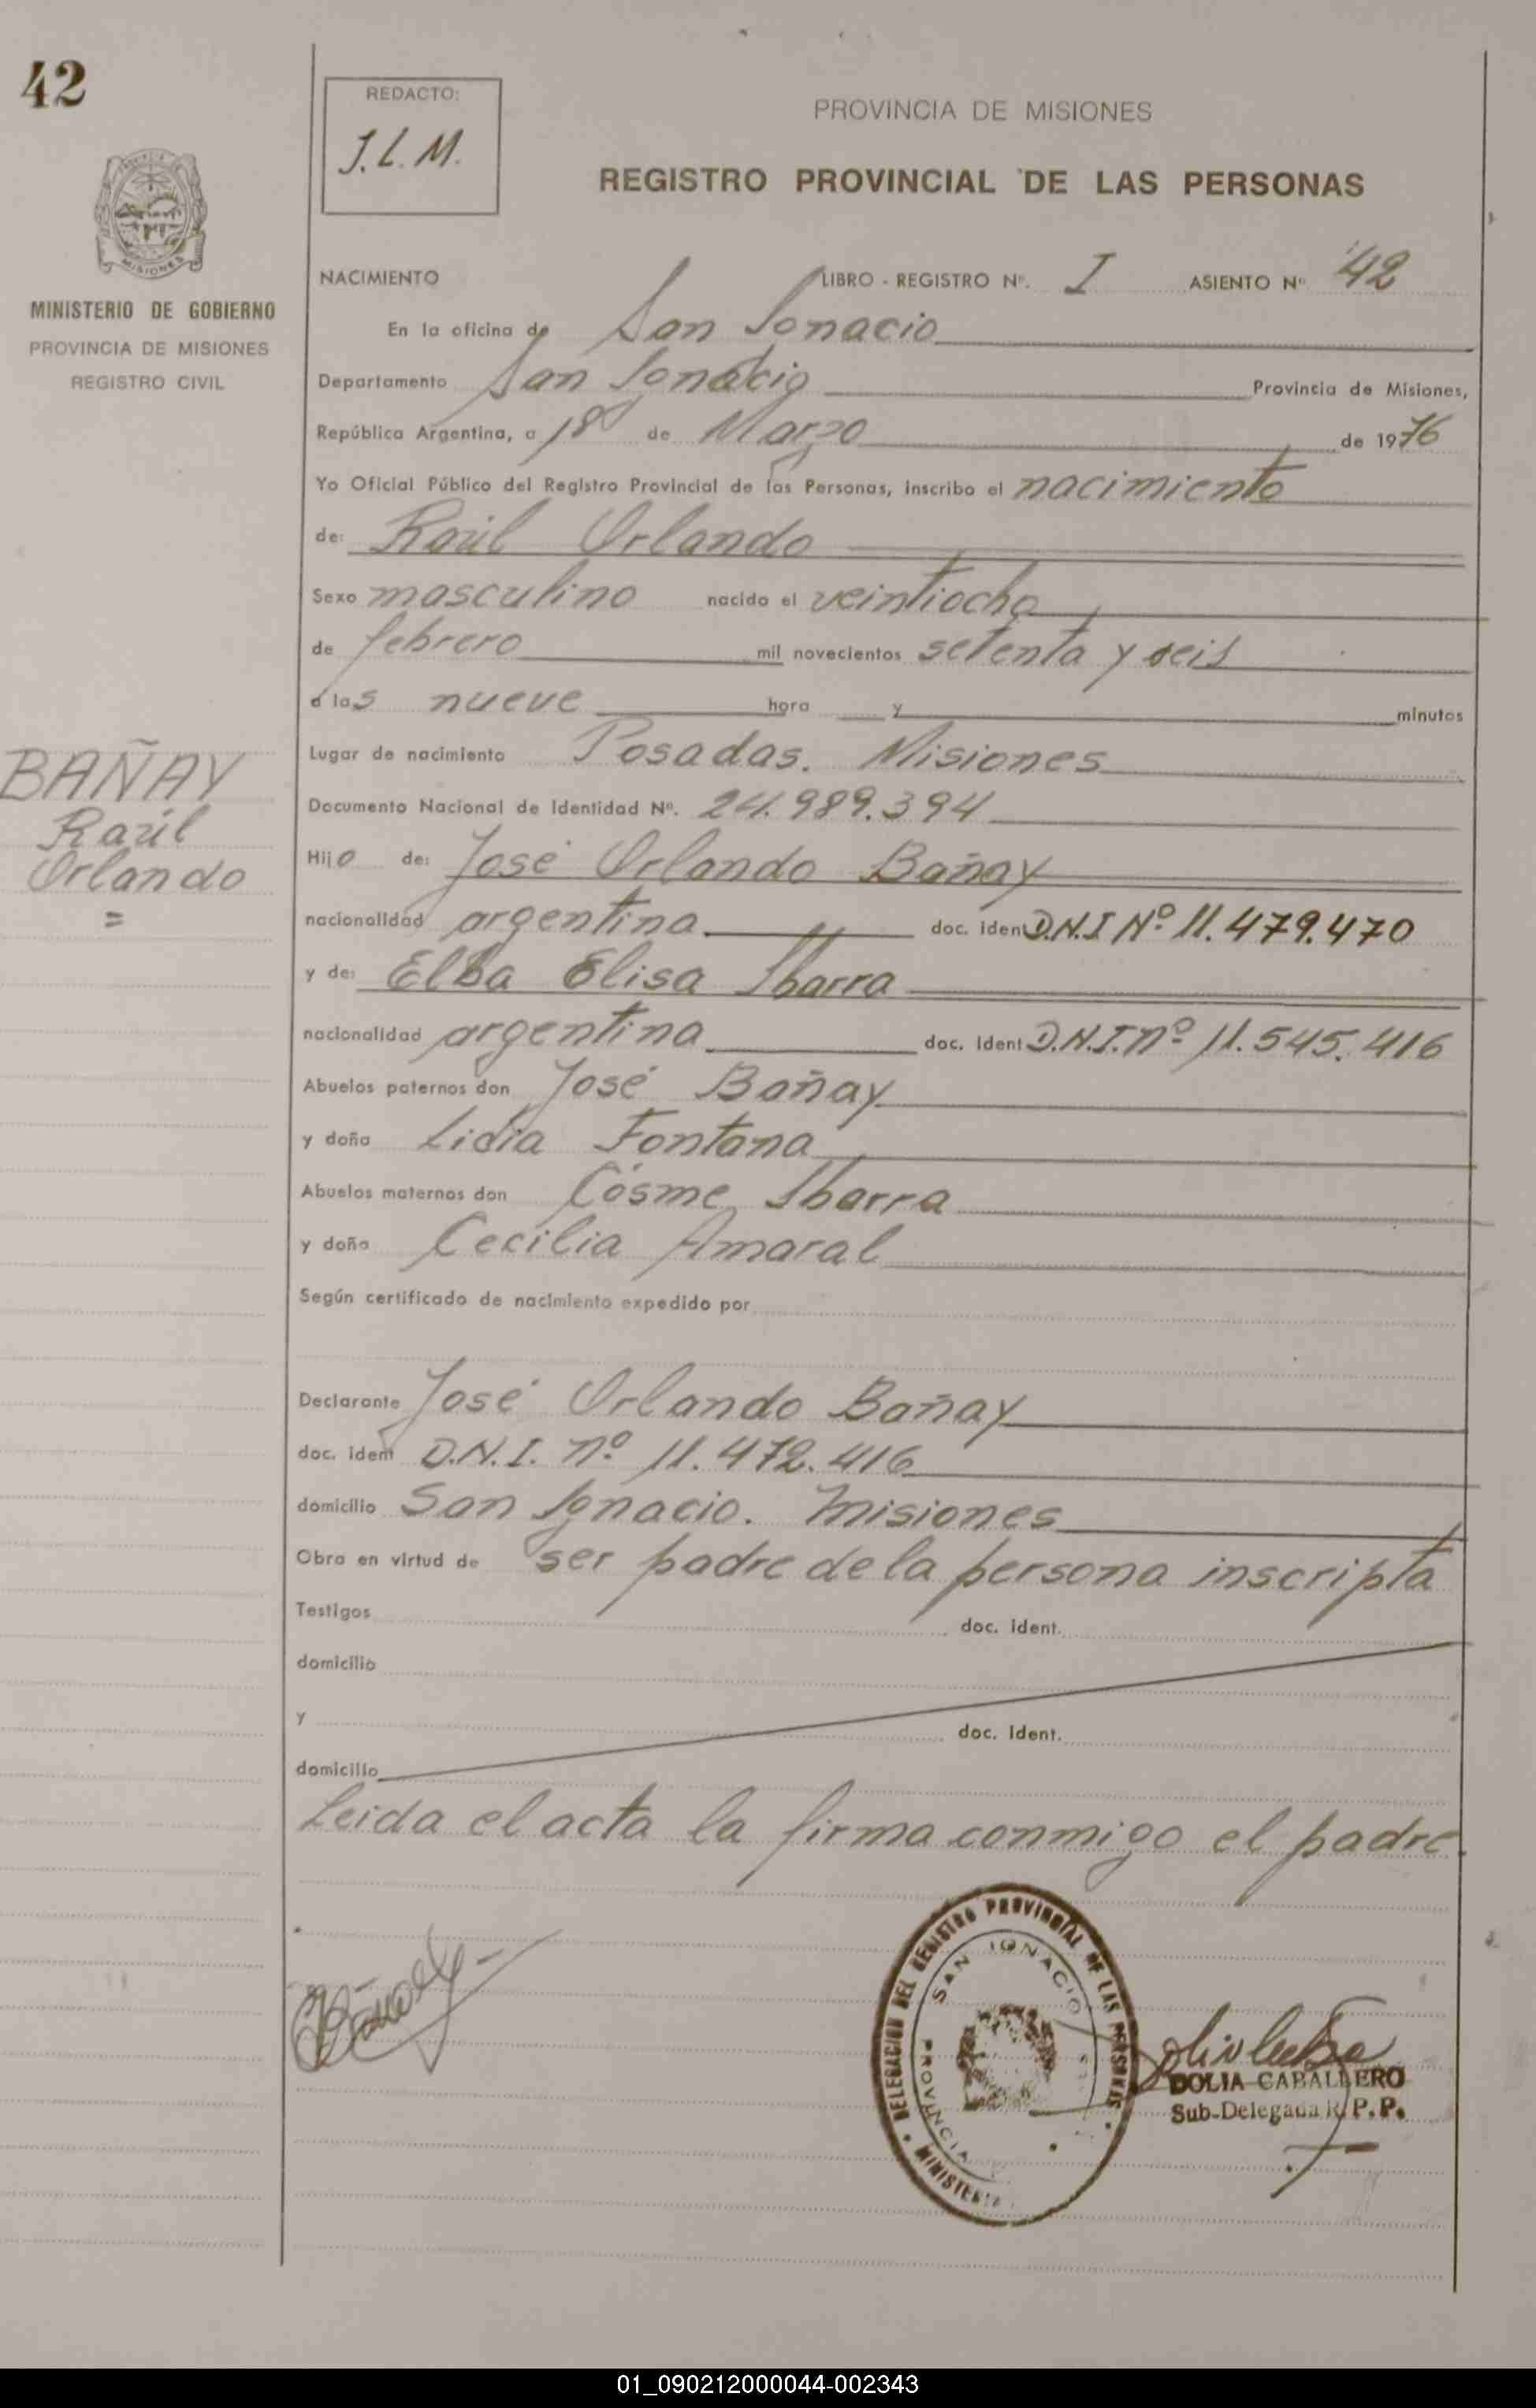 42
REDACTO:
J.L.M.
PROVINCIA DE MISIONES
REGISTRO PROVINCIAL DE LAS PERSONAS
MISIONES
MINISTERIO DE GOBIERNO
PROVINCIA DE MISIONES
REGISTRO CIVIL
NACIMIENTO LIBRO - REGISTRO Nº. I ASIENTO Nº 42
En la oficina de San Ignacio
Departamento San Ignacio Provincia de Misiones,
República Argentina, a 18 de Marzo de 1976
Yo Oficial Público del Registro Provincial de las Personas, inscribo el nacimiento
de: Raúl Orlando
Sexo masculino nacido el veintiocho
de febrero mil novecientos setenta y seis
a las nueve hora y minutos
Lugar de nacimiento Posadas. Misiones
BAÑAY
Raúl
Orlando
=
Documento Nacional de Identidad Nº. 24.989.394
Hijo de: José Orlando Bañay
nacionalidad argentina doc. iden D.N.I Nº 11.479.470
y de: Elba Elisa Ibarra
nacionalidad argentina doc. ident D.N.I. nº 11.545.416
Abuelos paternos don José Bañay
y doña Lidia Fontana
Abuelos maternos don Cosme Ibarra
y doña Cecilia Amaral
Según certificado de nacimiento expedido por
Declarante José Orlando Bañay
doc. ident D.N.I. nº 11.472.416
domicilio San Ignacio. Misiones
Obra en virtud de ser padre de la persona inscripta
Testigos doc. ident.
domicilio
y doc. ident.
domicilio
Leida el acta la firma conmigo el padre.
DELEGACION DEL REGISTRO PROVINCIAL DE LAS PERSONAS
SAN IGNACIO
PROVINCIA
MINISTERIO
DOLIA CABALLERO
Sub-Delegada R.P.P.
01_090212000044-002343